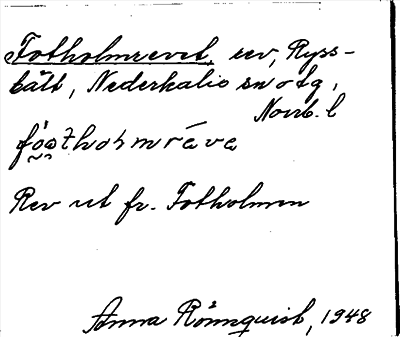 Fotholmrevet, rev, Ryss-
bält, Nederkalix sn o tg,
Norrb. l
Rev ut fr. Fotholmen
Anna Rönnquist, 1948